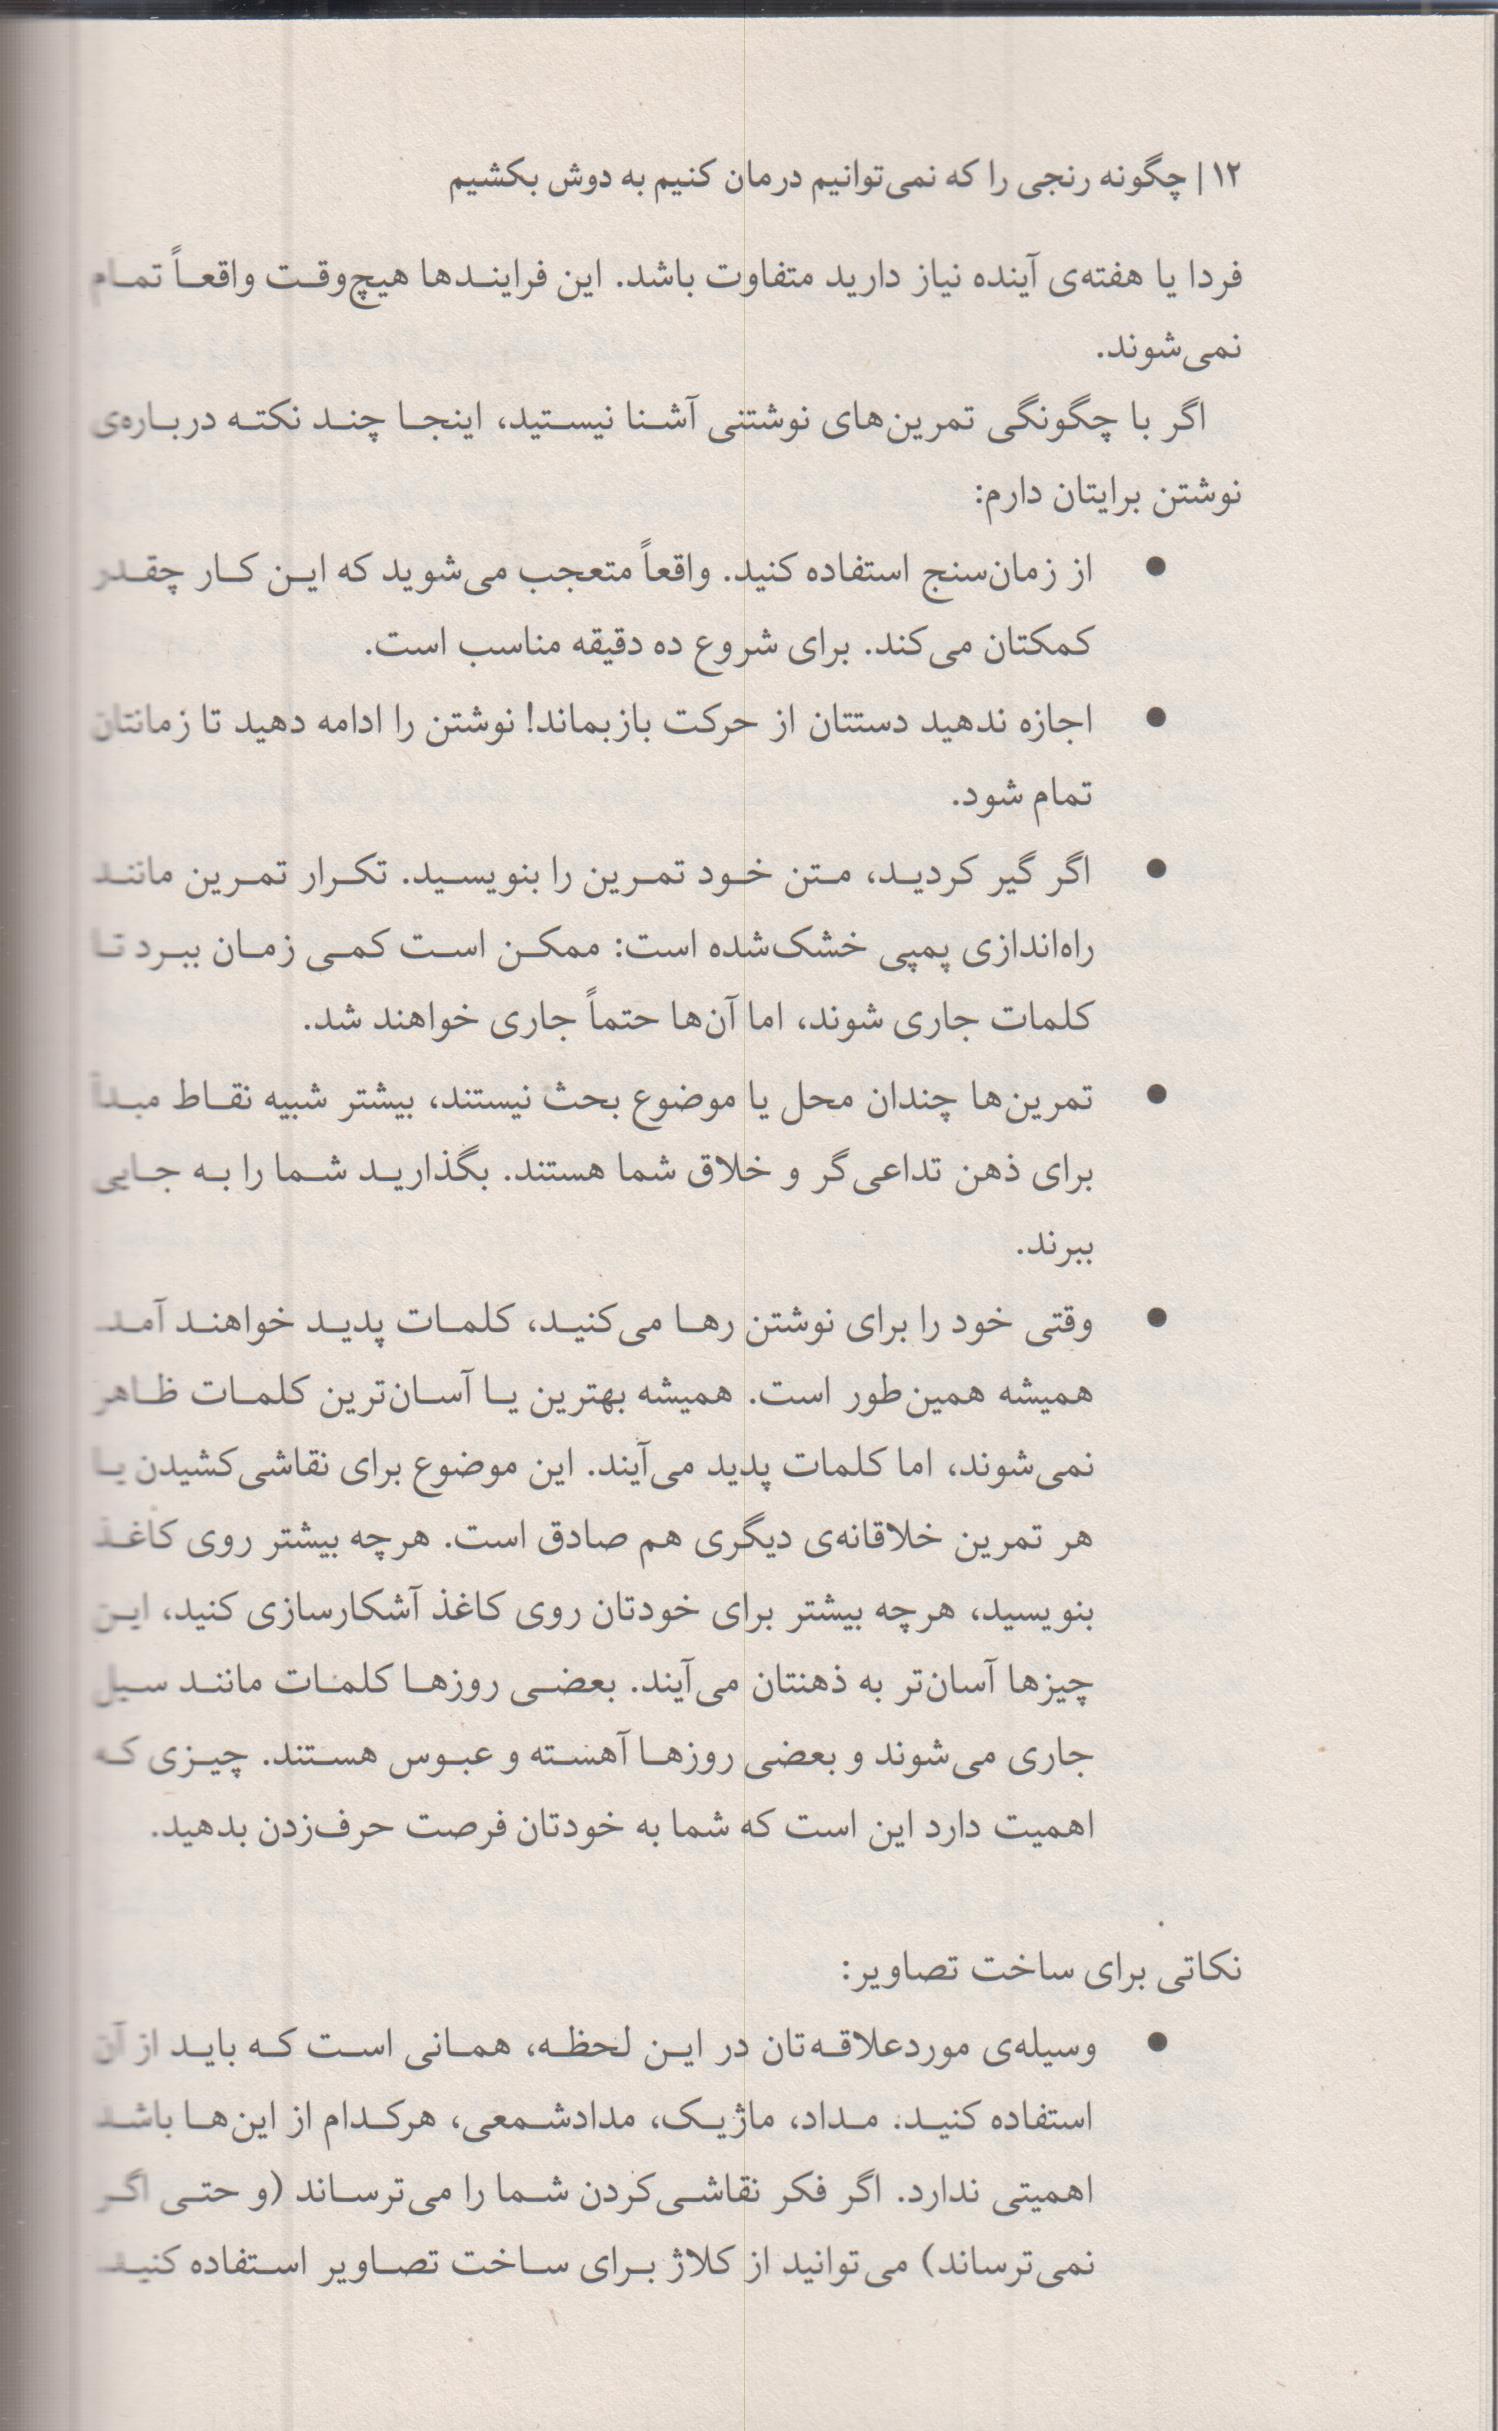 ۱۲ | چگونه رنجی را که نمی‌توانیم درمان کنیم به دوش بکشیم
فردا یا هفته‌ی آینده نیاز دارید متفاوت باشد. این فرایندها هیچ‌وقت واقعاً تمام
نمی‌شوند.
اگر با چگونگی تمرین‌های نوشتنی آشنا نیستید، اینجا چند نکته درباره‌ی
نوشتن برایتان دارم:
● از زمان‌سنج استفاده کنید. واقعاً متعجب می‌شوید که این کار چقدر
کمکتان می‌کند. برای شروع ده دقیقه مناسب است.
● اجازه ندهید دستتان از حرکت بازبماند! نوشتن را ادامه دهید تا زمانتان
تمام شود.
● اگر گیر کردید، متن خود تمرین را بنویسید. تکرار تمرین مانند
راه‌اندازی پمپی خشک‌شده است: ممکن است کمی زمان ببرد تا
کلمات جاری شوند، اما آن‌ها حتماً جاری خواهند شد.
● تمرین‌ها چندان محل یا موضوع بحث نیستند، بیشتر شبیه نقاط مبدأ
برای ذهن تداعی‌گر و خلاق شما هستند. بگذارید شما را به جایی
ببرند.
● وقتی خود را برای نوشتن رها می‌کنید، کلمات پدید خواهند آمد.
همیشه همین‌طور است. همیشه بهترین یا آسان‌ترین کلمات ظاهر
نمی‌شوند، اما کلمات پدید می‌آیند. این موضوع برای نقاشی‌کشیدن یا
هر تمرین خلاقانه‌ی دیگری هم صادق است. هرچه بیشتر روی کاغذ
بنویسید، هرچه بیشتر برای خودتان روی کاغذ آشکارسازی کنید، این
چیزها آسان‌تر به ذهنتان می‌آیند. بعضی روزها کلمات مانند سیل
جاری می‌شوند و بعضی روزها آهسته و عبوس هستند. چیزی که
اهمیت دارد این است که شما به خودتان فرصت حرف‌زدن بدهید.
نکاتی برای ساخت تصاویر:
● وسیله‌ی موردعلاقه‌تان در این لحظه، همانی است که باید از آن
استفاده کنید. مداد، ماژیک، مدادشمعی، هرکدام از این‌ها باشد
اهمیتی ندارد. اگر فکر نقاشی‌کردن شما را می‌ترساند (و حتی اگر
نمی‌ترساند) می‌توانید از کلاژ برای ساخت تصاویر استفاده کنید.